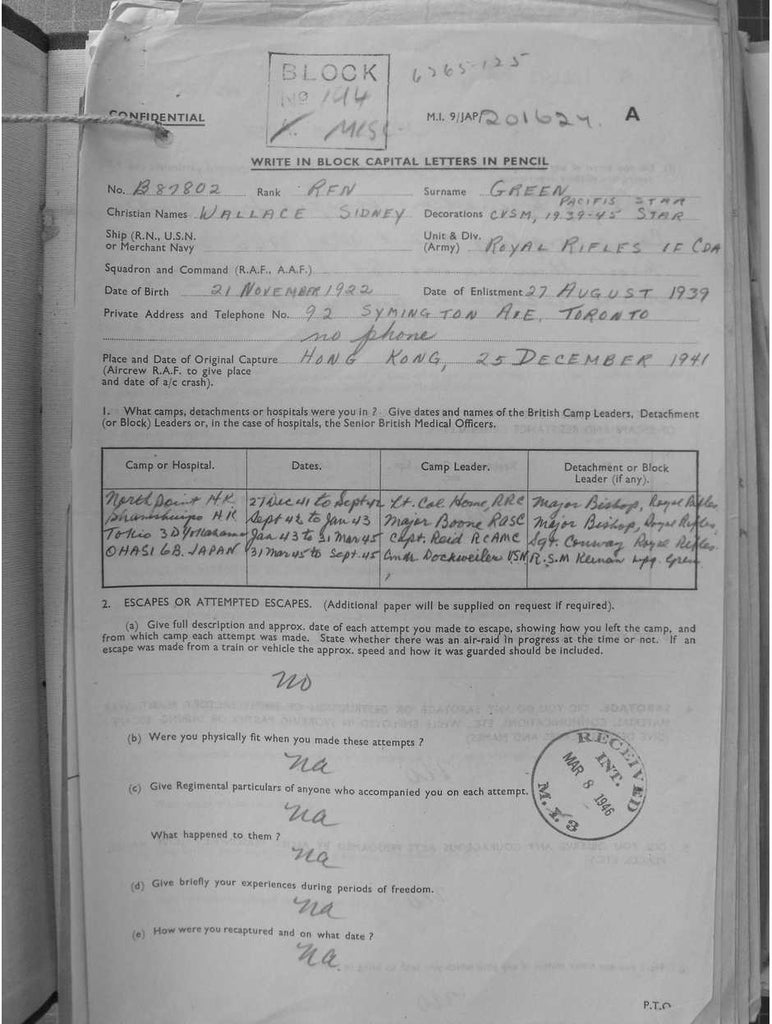 BLOCK
No 144
MISC
6265-125
CONFIDENTIAL
M.I. 9/JAP/201624. A
WRITE IN BLOCK CAPITAL LETTERS IN PENCIL
No. B87802 Rank RFN Surname GREEN
PACIFIS STAR
Christian Names WALLACE SIDNEY Decorations CVSM, 1939-45 STAR
Ship (R.N., U.S.N. or Merchant Navy Unit & Div. (Army) ROYAL RIFLES OF CDA
Squadron and Command (R.A.F., A.A.F.)
Date of Birth 21 NOVEMBER 1922 Date of Enlistment 27 AUGUST 1939
Private Address and Telephone No. 92 SYMINGTON AVE, TORONTO
no phone
Place and Date of Original Capture HONG KONG, 25 DECEMBER 1941
(Aircrew R.A.F. to give place
and date of a/c crash).
1. What camps, detachments or hospitals were you in ? Give dates and names of the British Camp Leaders, Detachment
(or Block) Leaders or, in the case of hospitals, the Senior British Medical Officers.
Camp or Hospital. Dates. Camp Leader. Detachment or Block Leader (if any).
North Point H.K 27 Dec 41 to Sept 42 Lt. Col Home, RRC Major Bishop, Royal Rifles
Shamshuipo H.K Sept 42 to Jan 43 Major Boone RASC Major Bishop, Royal Rifles
Tokio 3D Yokahama Jan 43 to 31 Mar 45 Capt. Reid RCAMC Sgt. Conway Royal Rifles.
OHASI 6B. JAPAN 31 Mar 45 to Sept. 45 Cmdr Dockweiler USN R.S.M Keenan Wpg. Gren
2. ESCAPES OR ATTEMPTED ESCAPES. (Additional paper will be supplied on request if required).
(a) Give full description and approx. date of each attempt you made to escape, showing how you left the camp, and
from which camp each attempt was made. State whether there was an air-raid in progress at the time or not. If an
escape was made from a train or vehicle the approx. speed and how it was guarded should be included.
NO
(b) Were you physically fit when you made these attempts ?
na
(c) Give Regimental particulars of anyone who accompanied you on each attempt.
na
What happened to them ?
na
(d) Give briefly your experiences during periods of freedom.
na
(e) How were you recaptured and on what date ?
na.
RECEIVED
INT.
MAR 8 1946
P.T.O